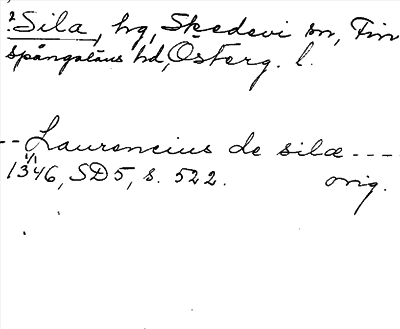 2 Sila, hg, Skedevi sn, Fin
spångaläns hd, Österg. l.
-- Laurencius de silæ ----
1346, SD 5, s. 522. orig.